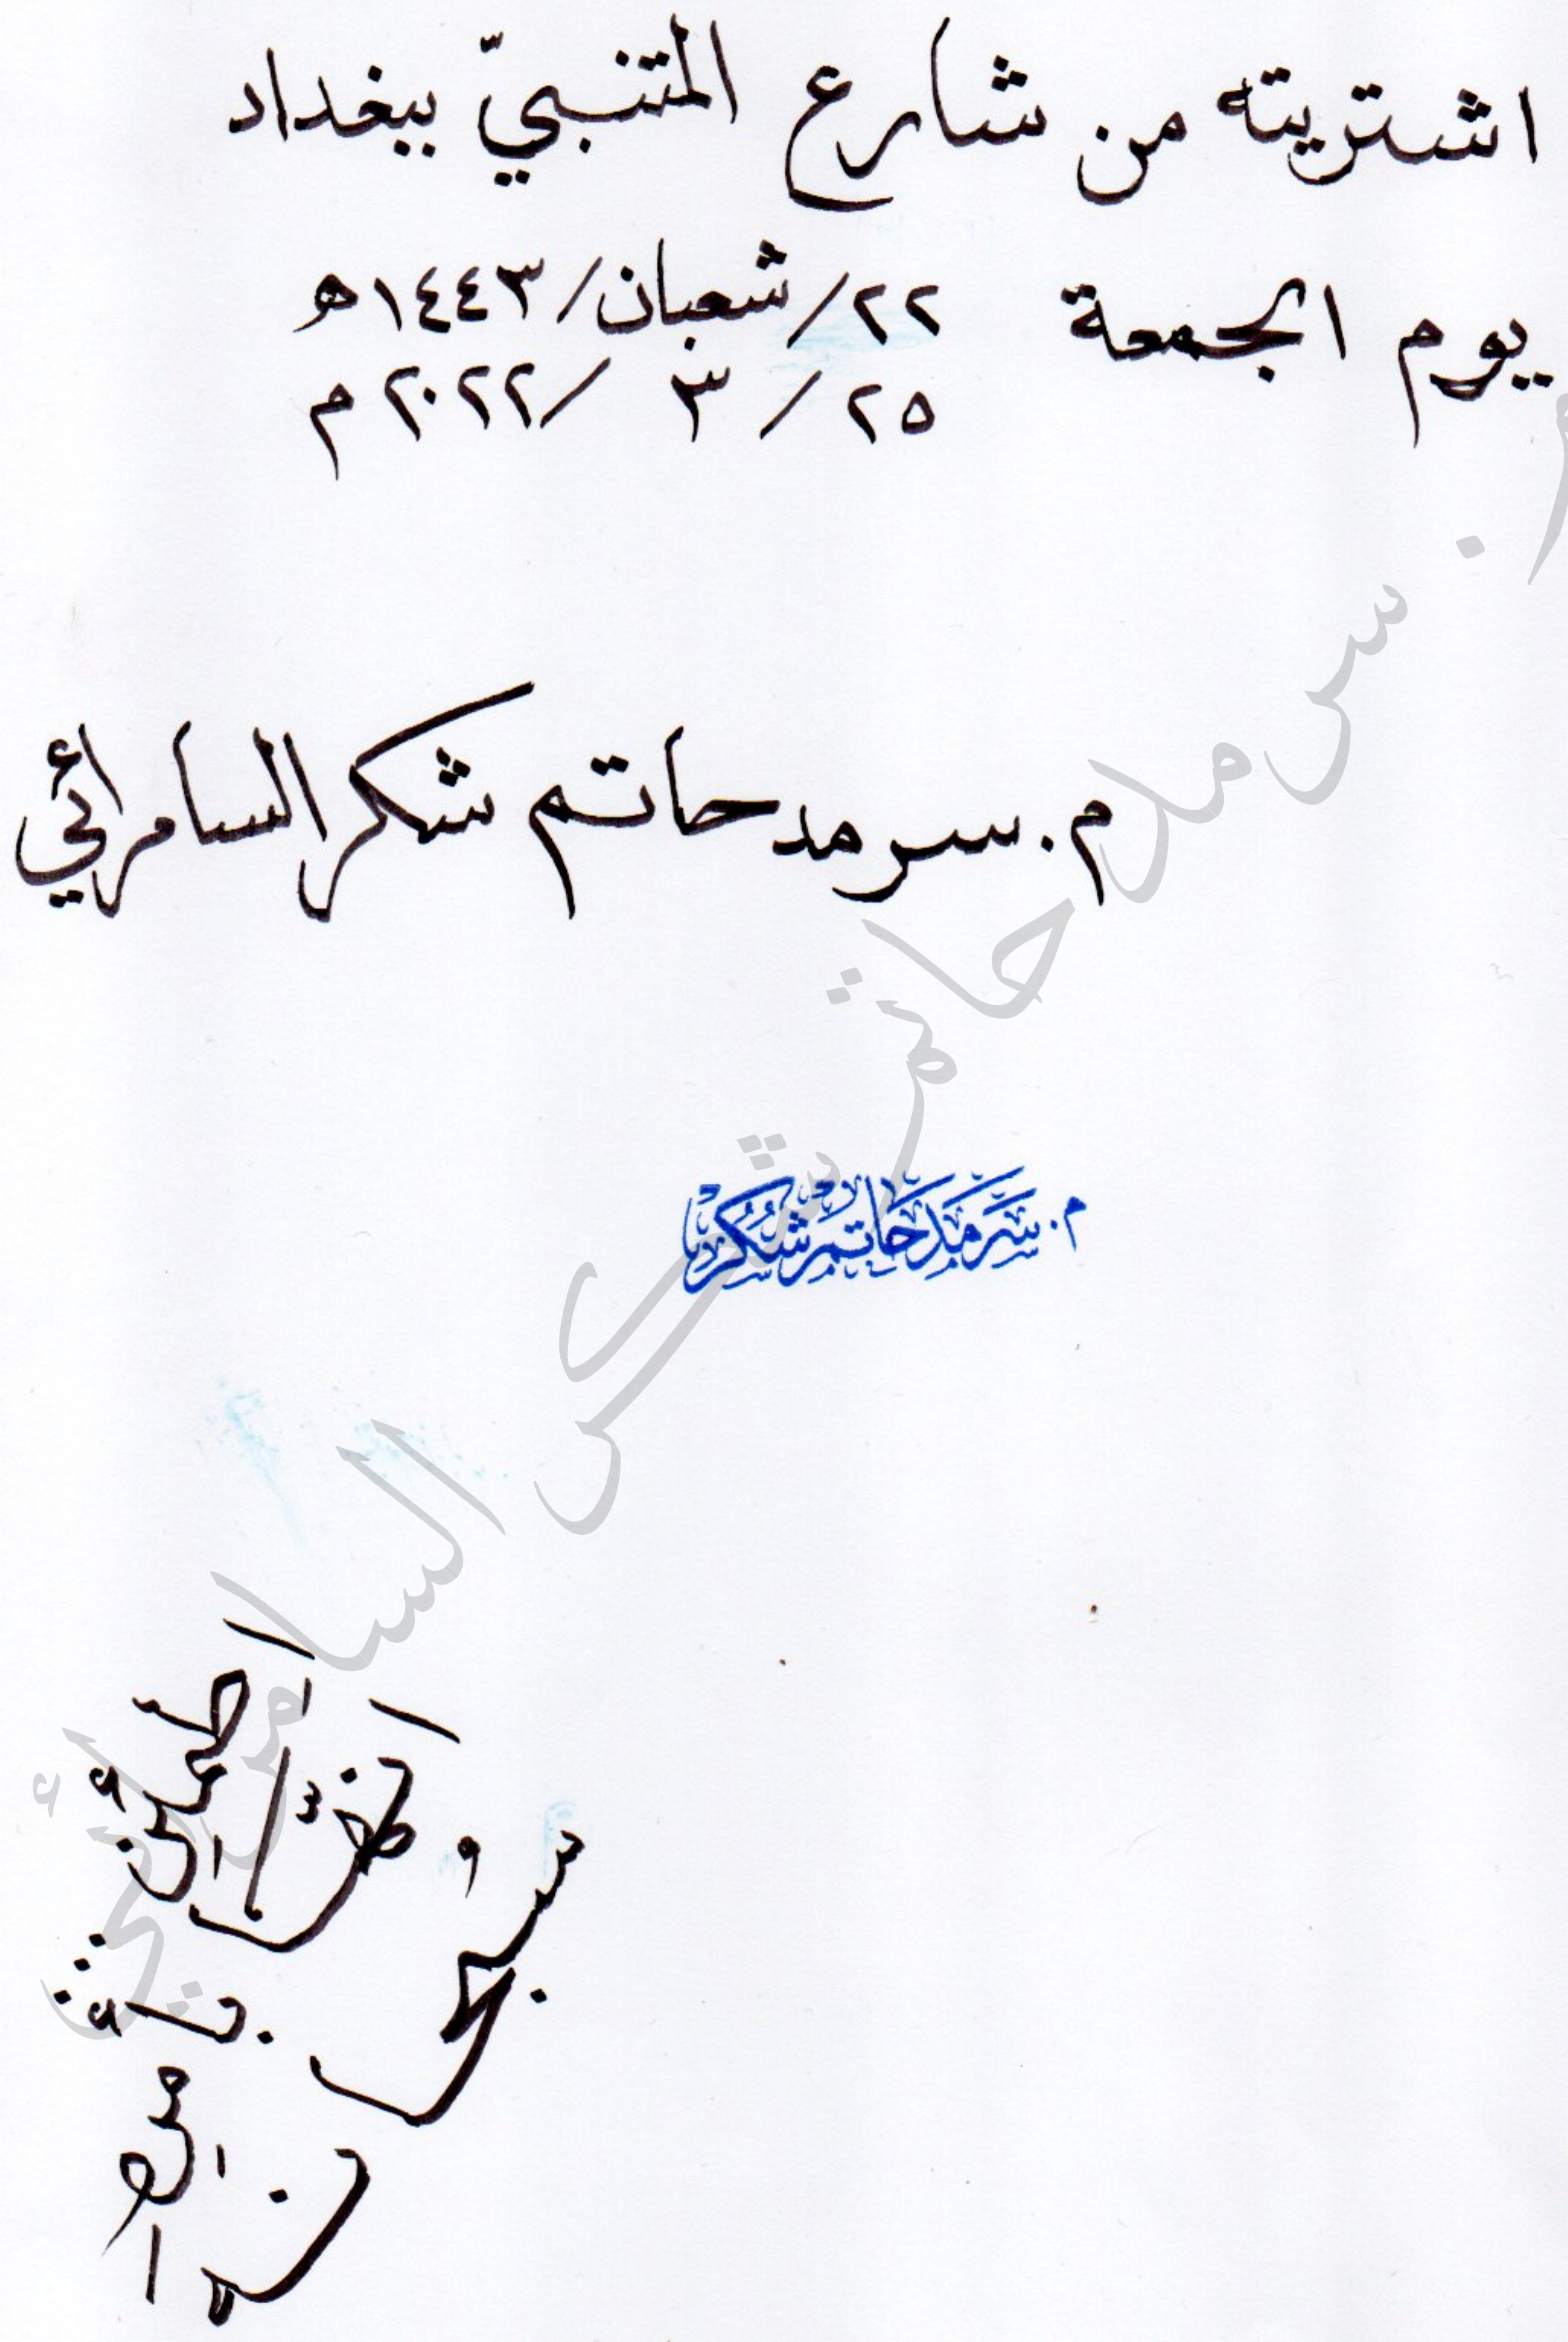 اشتريته من شارع المتنبيّ ببغداد
يوم الجمعة ٢٢/شعبان/١٤٤٣ه
٢٥/ ٣ /٢٠٢٢م
م. سرمد حاتم شكر السامرائي
م. سرمد حاتم شكر السامرائي
م. سَرْمَد حَاتِم شُكُر